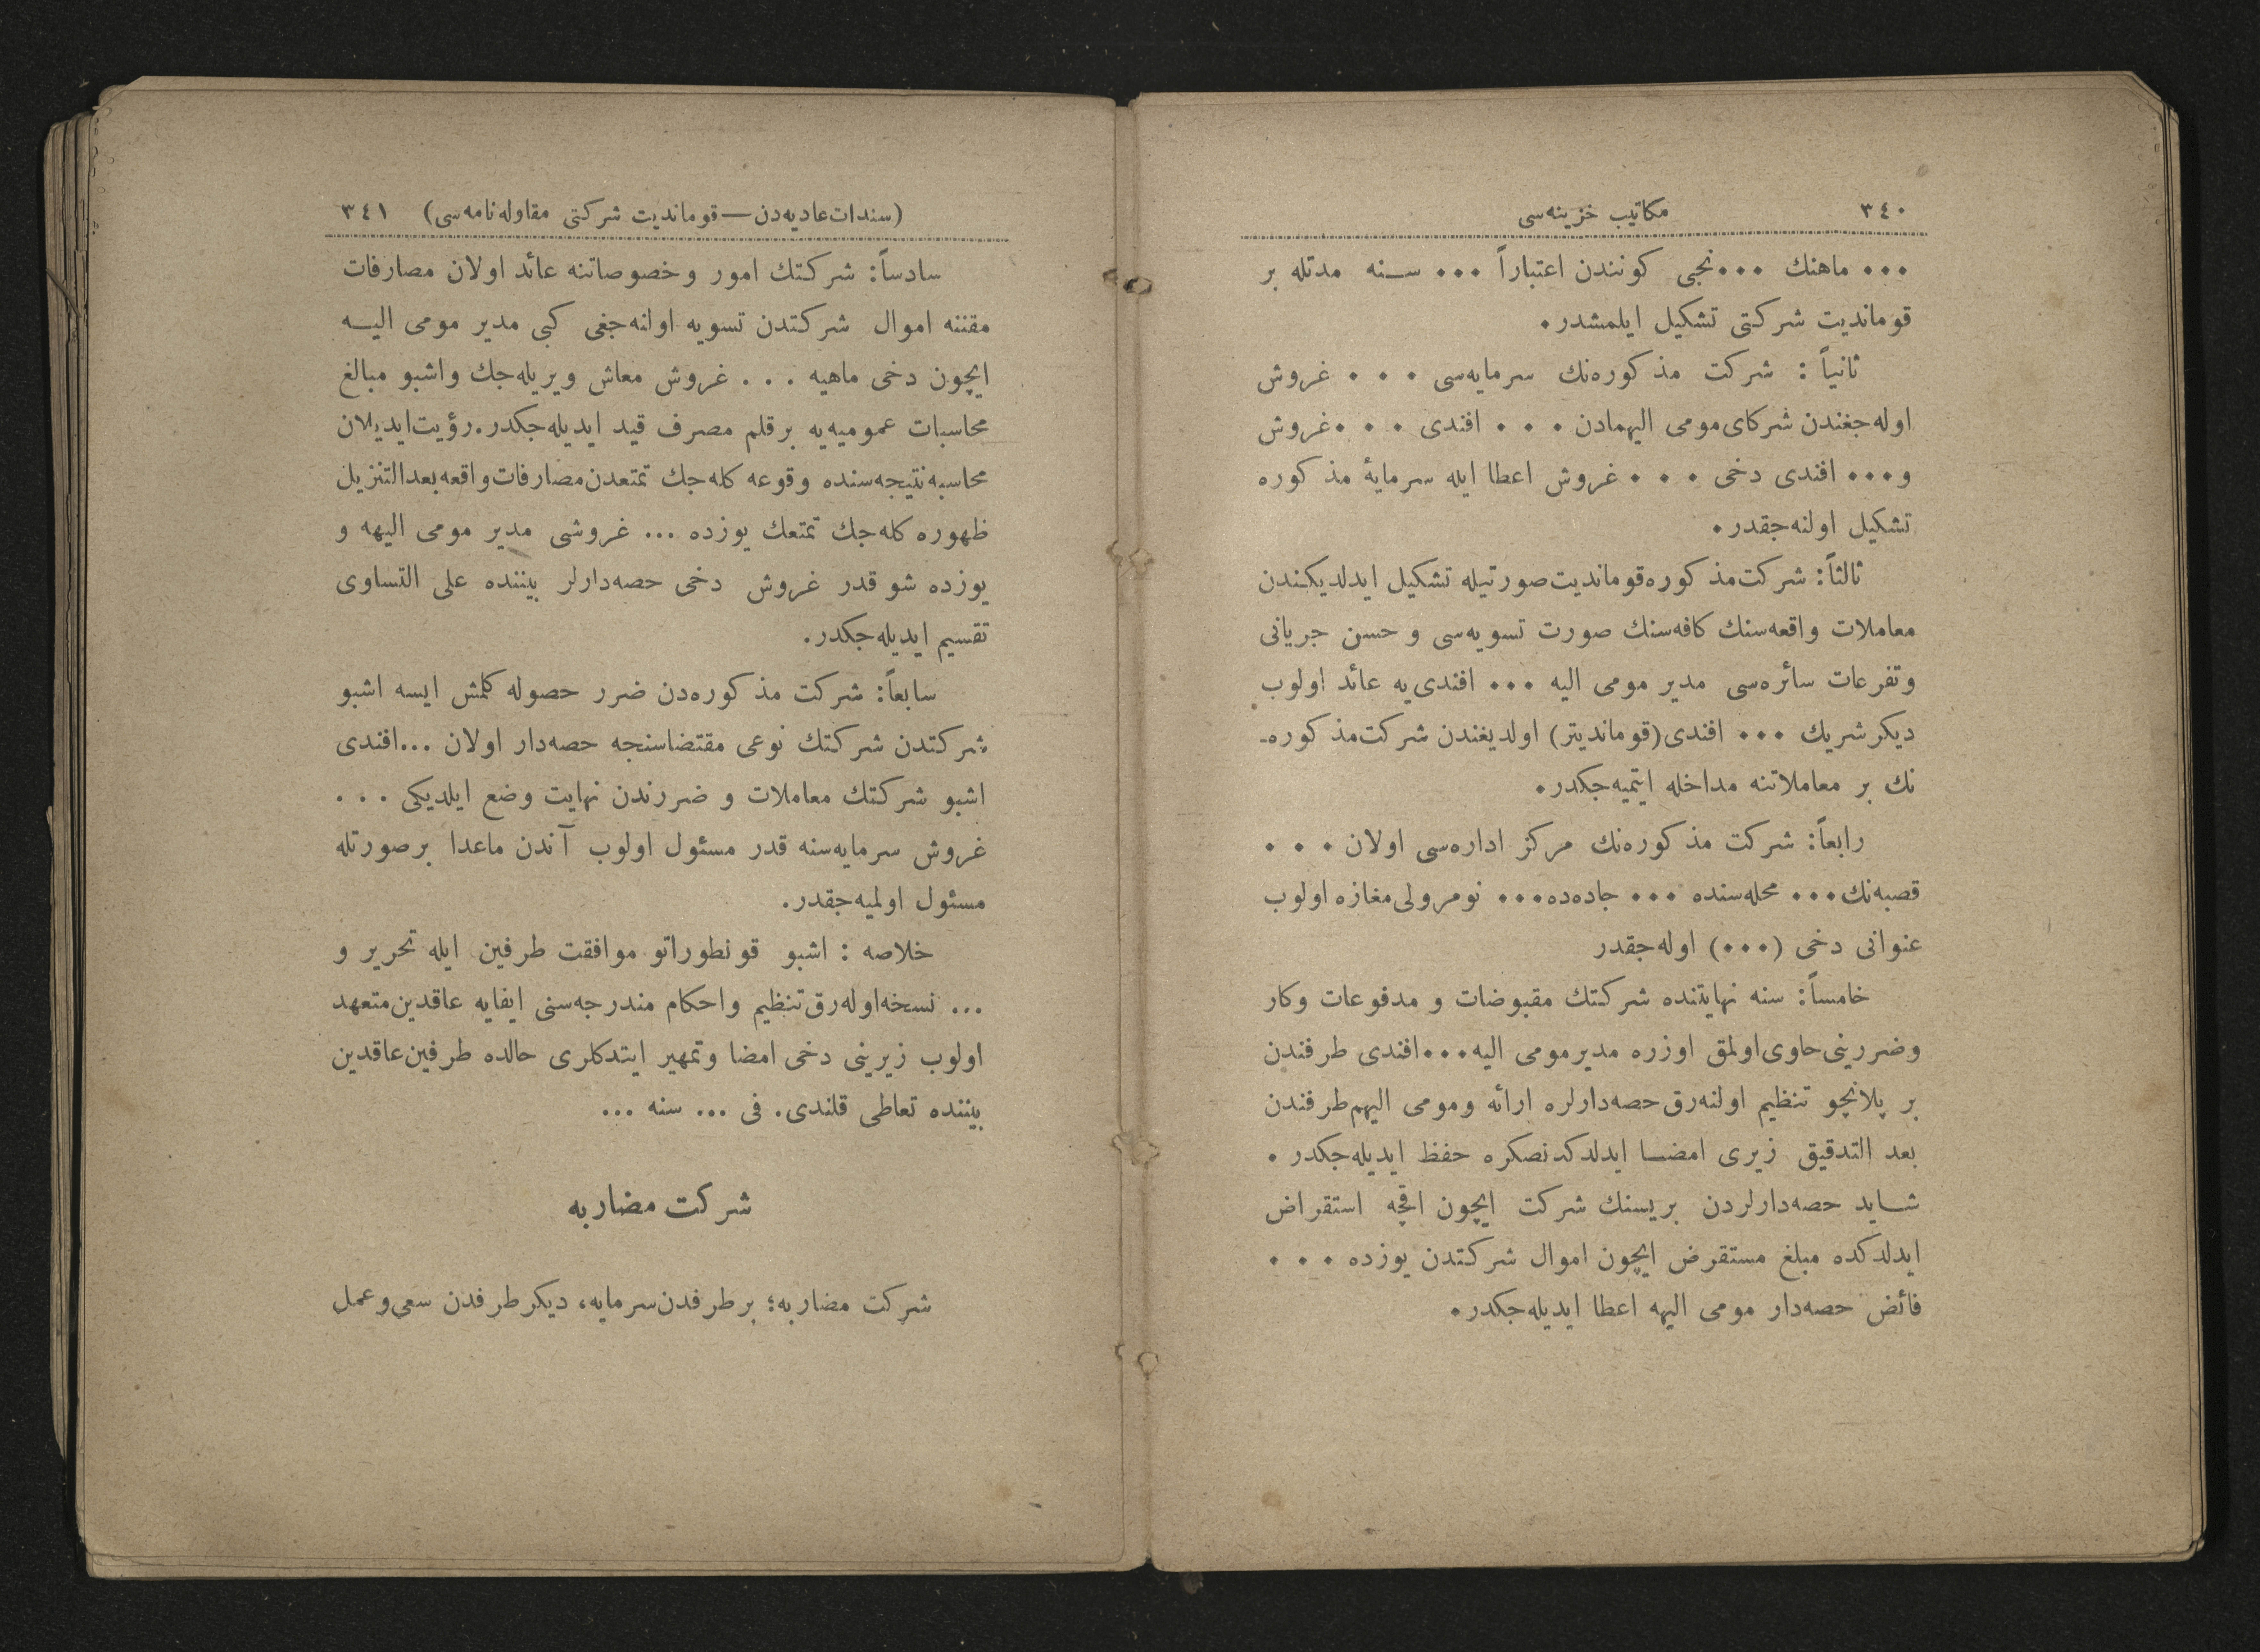 ٣٤٠ مكاتيب خزينه‌سى
... ماهنك ...نجى كونندن اعتباراً ... سنه مدتله بر
قومانديت شركتى تشكيل ايلمشدر.
ثانياً : شركت مذكوره‌نك سرمايه‌سى ... غروش
اوله‌جغندن شركاى مومى اليهمادن ... افندى ... غروش
و... افندى دخى ... غروش اعطا ايله سرمايۀ مذكوره
تشكيل اولنه‌جقدر.
ثالثاً: شركت مذكوره قومانديت صورتيله تشكيل ايدلديكندن
معاملات واقعه‌سنك كافه‌سنك صورت تسويه‌سى و حسن جريانى
وتفرعات سائره‌سى مدير مومى اليه ... افندى‌يه عائد اولوب
ديكر شريك ... افندى (قومانديتر) اولديغندن شركت مذكوره‌-
نك بر معاملاتنه مداخله ايتميه‌جكدر.
رابعاً: شركت مذكوره‌نك مركز اداره‌سى اولان ...
قصبه‌نك ... محله‌سنده ... جاده‌ده ... نومرولى مغازه اولوب
عنوانى دخى (...) اوله‌جقدر
خامساً: سنه نهايتنده شركتك مقبوضات و مدفوعات وكار
وضررينى حاوى اولمق اوزره مدير مومى اليه...افندى طرفندن
بر پلانچو تنظيم اولنه‌رق حصه‌دارلره ارائه ومومى اليهم طرفندن
بعد التدقيق زيرى امضا ايدلدكدنصكره حفظ ايديله‌جكدر .
شايد حصه‌دارلردن بريسنك شركت ايچون اقچه استقراض
ايدلدكده مبلغ مستقرض ايچون اموال شركتدن يوزده ...
فائض حصه‌دار مومى اليه اعطا ايديله‌جكدر.
(سندات عاديه‌دن — قومانديت شركتى مقاوله‌نامه‌سى) ٣٤١
سادساً: شركتك امور و خصوصاتنه عائد اولان مصارفات
مقننه اموال شركتدن تسويه اولنه‌جغى كبى مدير مومى اليه
ايچون دخى ماهيه ... غروش معاش ويريله‌جك واشبو مبالغ
محاسبات عموميه‌يه برقلم مصرف قيد ايديله‌جكدر. رؤيت ايديلان
محاسبه نتيجه‌سنده وقوعه كله‌جك تمتعدن مصارفات واقعه بعدالتنزيل
ظهوره كله‌جك تمتعك يوزده ... غروشى مدير مومى اليهه و
يوزده شو قدر غروش دخى حصه‌دارلر بيننده على التساوى
تقسيم ايديله‌جكدر.
سابعاً: شركت مذكوره‌دن ضرر حصوله كلمش ايسه اشبو
شركتدن شركتك نوعى مقتضاسنجه حصه‌دار اولان ...افندى
اشبو شركتك معاملات و ضررندن نهايت وضع ايلديكى ...
غروش سرمايه‌سنه قدر مسئول اولوب آندن ماعدا برصورتله
مسئول اولميه‌جقدر.
خلاصه : اشبو قونطوراتو موافقت طرفين ايله تحرير و
... نسخه اوله‌رق تنظيم واحكام مندرجه‌سنى ايفايه عاقدين متعهد
اولوب زيرينى دخى امضا وتمهير ايتدكلرى حالده طرفين عاقدين
بيننده تعاطى قلندى. فى ... سنه ...
شركت مضاربه
شركت مضاربه؛ بر طرفدن سرمايه، ديكر طرفدن سعى و عمل